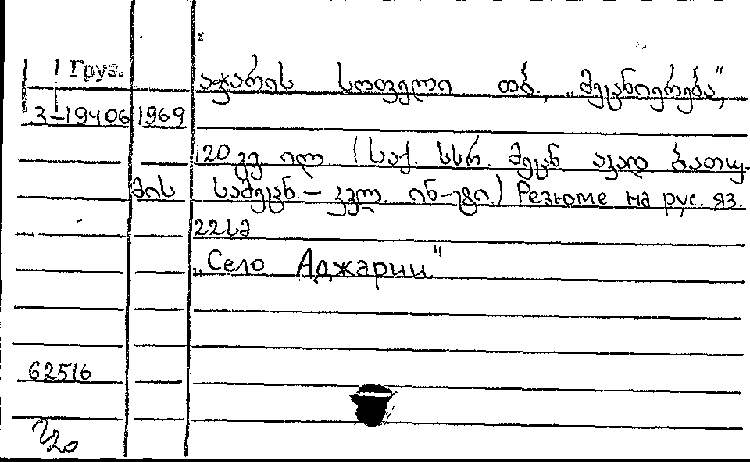 Груз.
აჭარის სოფელი თბ., „მეცნიერება",
3-19406 1969
120 გვ. ილ. (საქ. სსრ. მეცნ. აკად. ბათუ-
მის სამეცნ-კვლ. ინ-ტი.) Резюме на рус. яз.
22სმ
„Село Аджарии"
62516